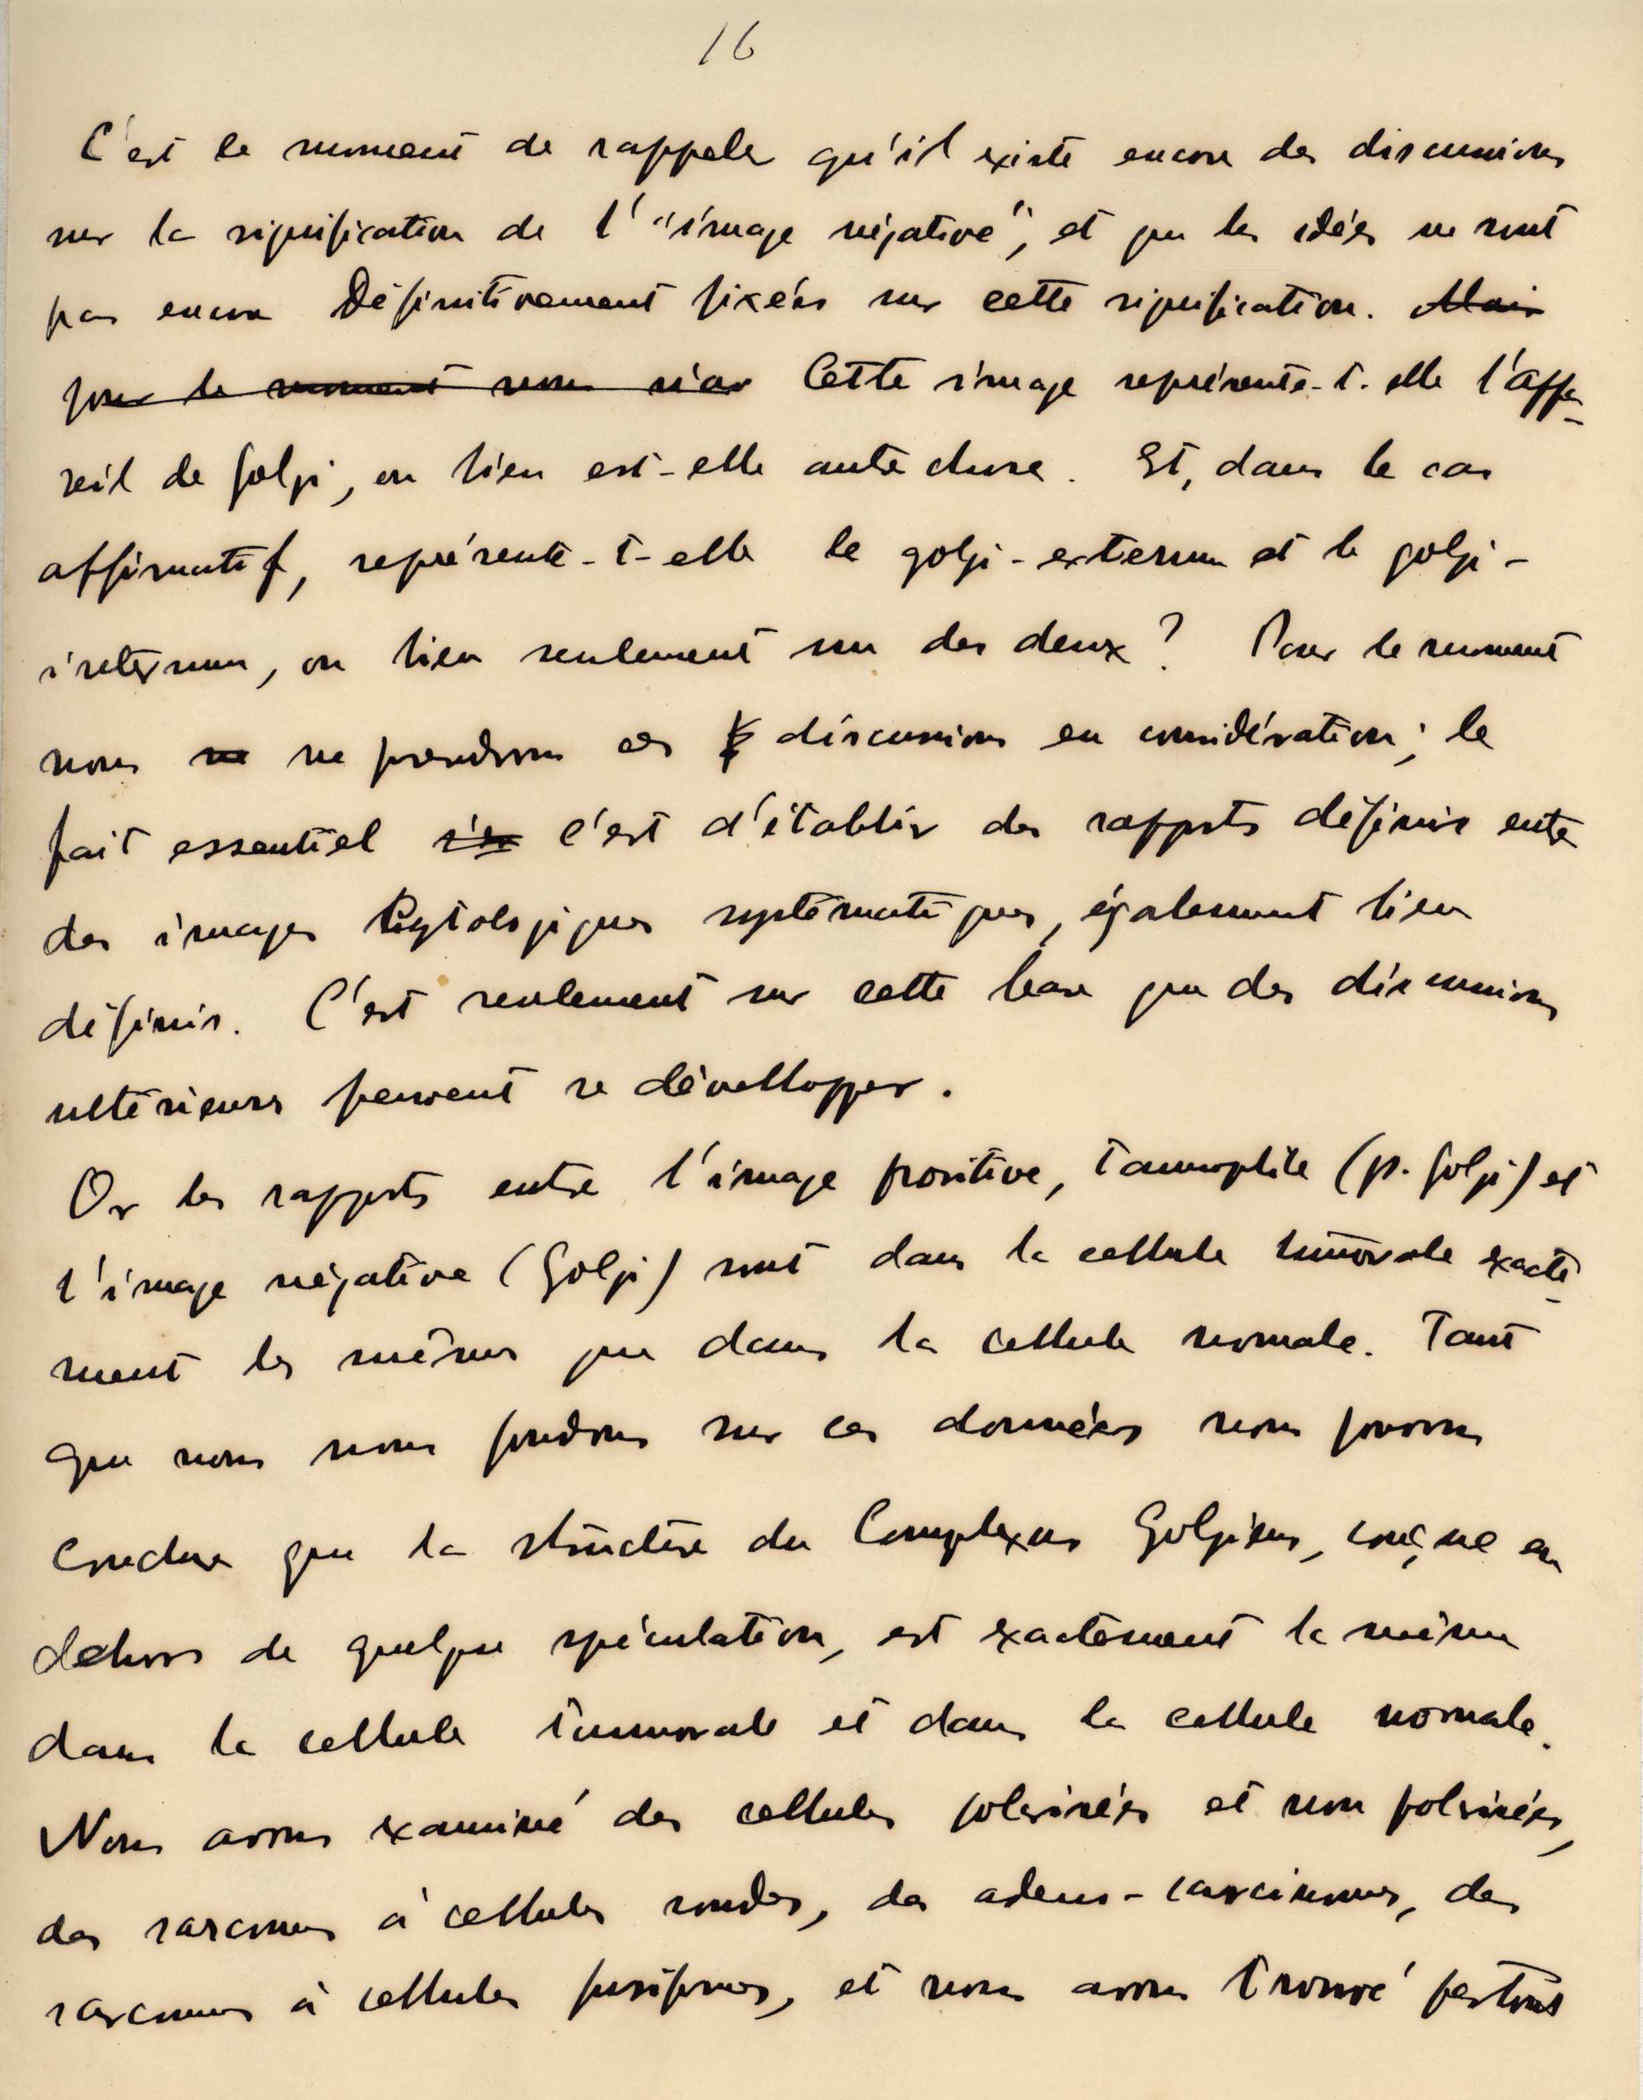 16
C'est le moment de rappeler qu'il existe encore des discussions
sur la signification de l'"image négative", et que les idées ne sont
pas encore définitivement fixées sur cette signification. Mais
pour le moment nous n'av Cette image représente-t-elle l'appa-
reil de Golgi, ou bien est-elle autre chose. Et, dans le cas
affirmatif, représente-t-elle le golgi-externum et le golgi-
internum, ou bien seulement un des deux? Pour le moment
nous ne ne prendrons ces discussions en considération; le
fait essentiel c'est d'établir des rapports définis entre
des images cytologiques systématiques, également bien
définis. C'est seulement sur cette base que des discussions
ultérieurs peuvent se dévellopper.
Or les rapports entre l'image positive, tannophile (p. Golgi) et
l'image négative (Golgi) sont dans la cellule tumorale exacte-
ment les mêmes que dans la cellule normale. Tant
que nous nous fondons sur ces données nous pouvons
conclure que la structure du Complexus Golgien, conçue en
dehors de quelque spéculation, est exactement la même
dans la cellule tumorale et dans la cellule normale.
Nous avons examiné des cellules polarisées et non polarisées,
des sarcomes à cellules rondes, des adeno-carcinomes, des
sarcomes à cellules fusiformes, et nous avons trouvé partout